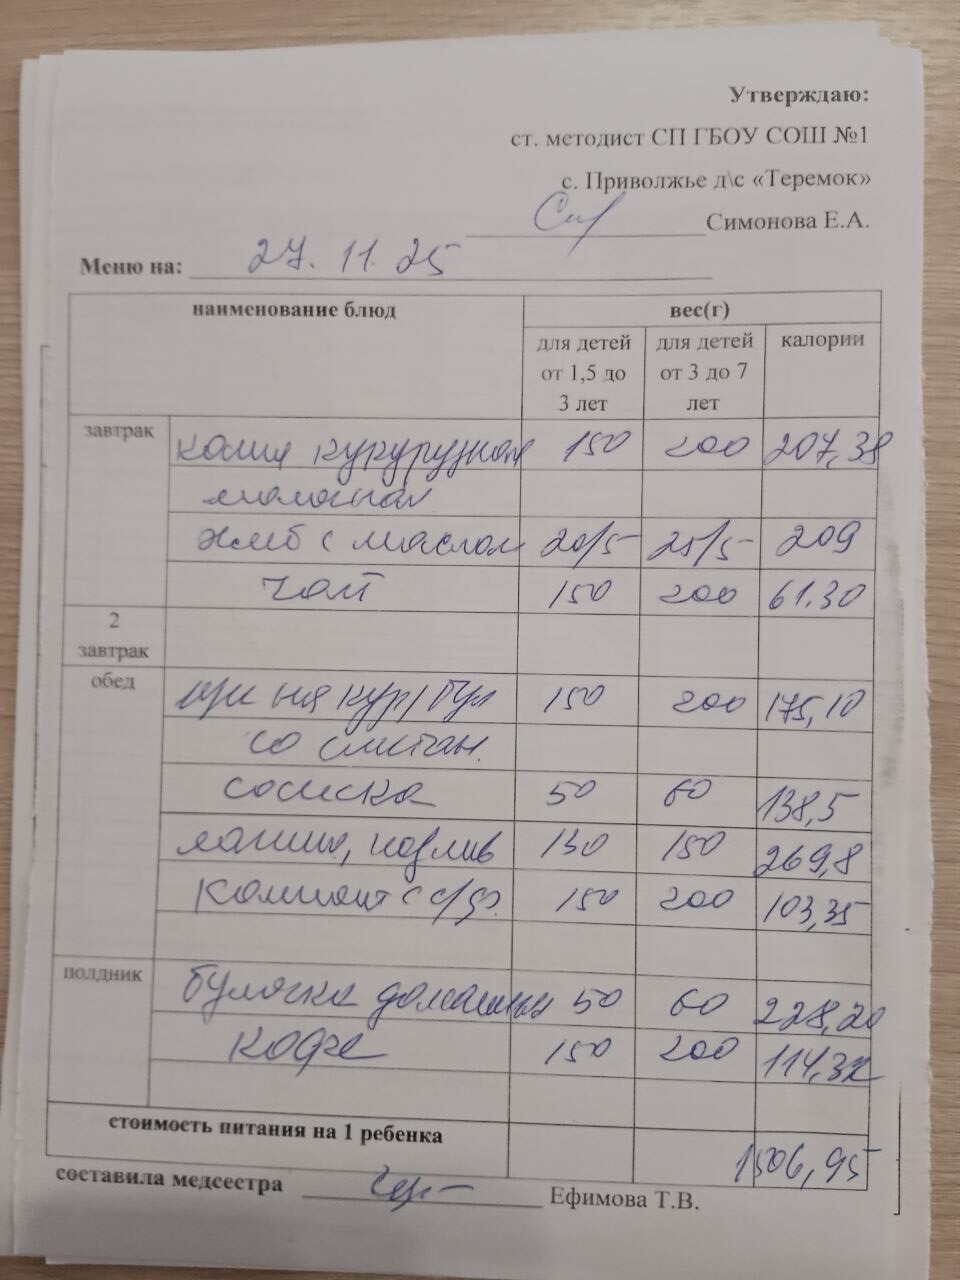 Утверждаю:
ст. методист СП ГБОУ СОШ №1
с. Приволжье д\с «Теремок»
Симонова Е.А.
Меню на: 27.11.25
наименование блюд вес(г)
для детей от 1,5 до 3 лет для детей от 3 до 7 лет калории
завтрак каша кукурузная 150 200 207,38
молочная
хлеб с маслом 20/5 25/5 209
чай 150 200 61.30
2 завтрак
обед щи на кур/бул 150 200 175,10
со сметан.
сосиска 50 60 138,5
лапша, подлив 130 150 269,8
компот с с/ф. 150 200 103,35
полдник булочка домашняя 50 60 228,20
кофе 150 200 114,32
стоимость питания на 1 ребенка 1506,95
составила медсестра Ефимова Т.В.